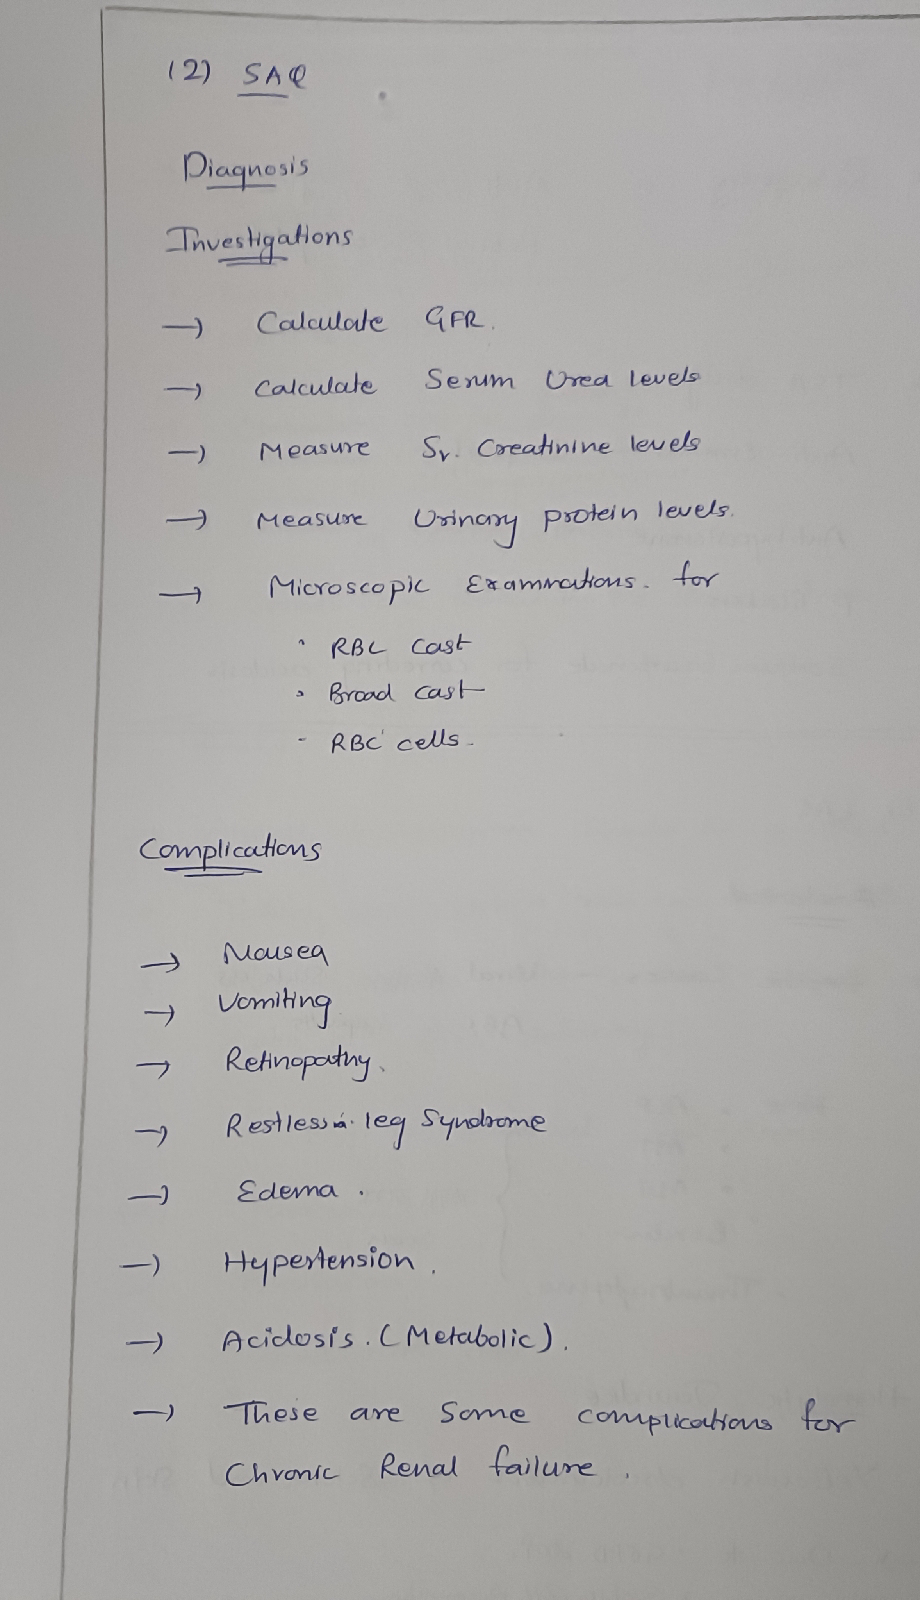 (2) SAQ
Diagnosis
Investigations
→ Calculate GFR.
→ Calculate Serum Urea levels
→ Measure Sr. Creatinine levels
→ Measure Urinary protein levels.
→ Microscopic Examinations. for
• RBC cast
• Broad cast
- RBC cells.
Complications
→ Nausea
→ Vomiting
→ Retinopathy.
→ Restless leg Syndrome
→ Edema.
→ Hypertension.
→ Acidosis. (Metabolic).
→ These are Some complications for
Chronic Renal failure.